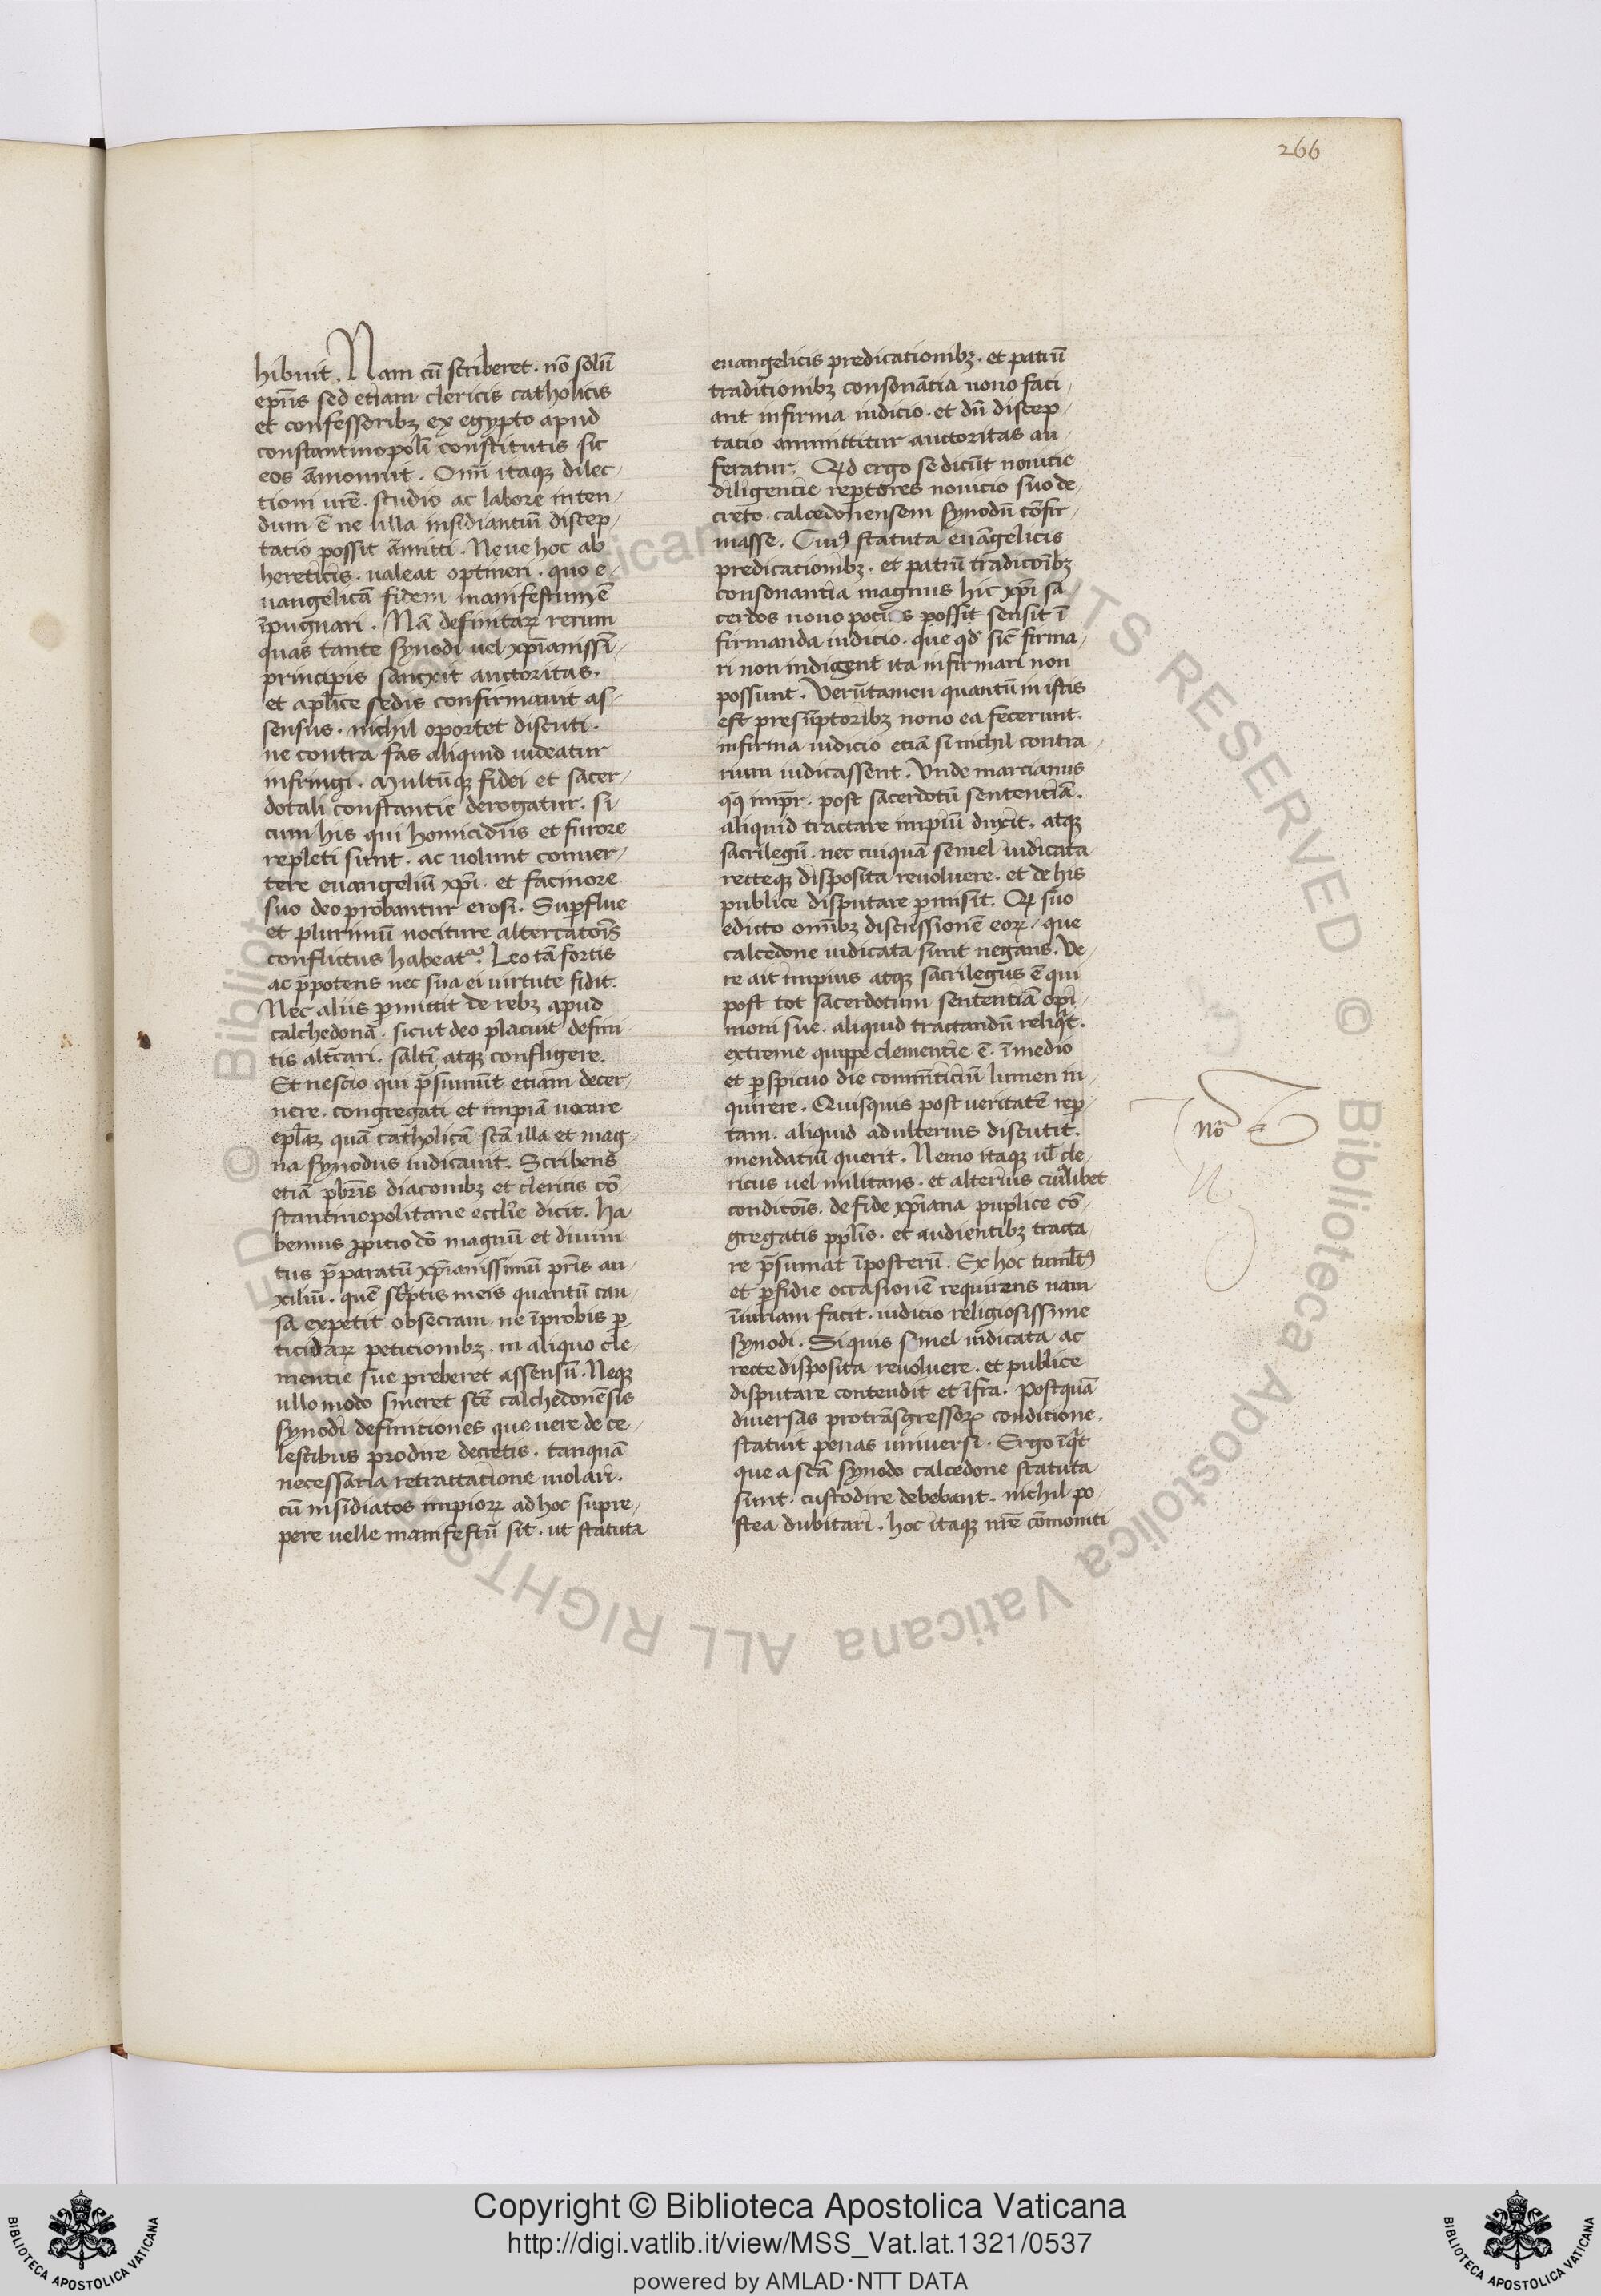 266
hibuit. Nam cū scriberet. nō solū
ep̄is sed etiam clericis catholicis
et confessoribꝫ ex egypto apud
constantinopoli constitutis sic
eos āmonuit. Om̄i itaqꝫ dilec-
tioni vr̄e. studio ac labore inten-
dum ē ne ulla insidiantiū discep-
tatio possit āmitti. Neue hoc ab
hereticis. ualeat optineri. quo e-
uangelicā fidem manifestum ē
īpugnari. Nā definitaꝝ rerum
quas tante synodi uel xp̄ianissīi
principis sancxit auctoritas.
et ap̄lice sedis confirmauit as-
sensus. nichil oportet discuti.
ne contra fas aliquid uideatur
infringi. Multūqꝫ fidei et sacer-
dotali constantie derogatur. si
cum his qui homicidiis et furore
repleti sunt. ac nolunt conuer-
tere euangeliū xp̄i. et facinore
suo deo probantur erosi. Suꝑflue
et plurimū nociture altercatōis
conflictus habeatᷣ. Leo tā fortis
ac p̄potens nec sua ei uirtute fidit.
Nec aliis ꝑmittit de rebꝫ apud
calchedonā. sicut deo placuit defini-
tis alt̄cari. saltī atqꝫ confligere.
Et nescio qui p̄sumūt etiam decer-
nere. congregati et impiā uocare
quā catholicā sc̄a illa et mag-
na synodus iudicauit. Scribens
etiā p̄bris diaconibꝫ et clericis cō-
stantinopolitane eccl̄ie dicit. Ha
bemus ꝓpicio dō magnū et diuini
tus p̄paratū xp̄ianissimū pr̄is au-
xiliū. quē sc̄ptis meis quantū cau-
sa expetit obsecram. ne īprobis ꝑ
ticidaꝝ peticionibꝫ. in aliquo cle-
mentie sue preberet assensū. Neqꝫ
ullo modo sineret sc̄e calchedonēsis
synodi definitiones que uere de ce-
lestibus prodire decretis. tanquā
necessaria retractatione uiolari.
cū insidiatos impioꝝ ad hoc supre-
pere uelle manifestū sit. ut statuta
euangelicis predicationibꝫ. et patrū
traditionibꝫ consonātia nouo faci-
ant infirma iudicio. et dū discep-
tacio ammittitur auctoritas au-
feratur. Qd ergo se dicūt nouicie
diligencie reꝑtores nouicio suo de-
creto. calcedonensem synodū cōfir-
masse. Cuiꝰ statuta euāgelicis
predicationibꝫ. et patrū tradicōibꝫ
consonantia magnus hic xp̄i sa
cerdos nouo pocius possit sensit ī
firmanda iudicio. que qd̄ sic̄ firma-
ri non indigent ita infirmari non
possunt. Verūtamen quantū in istis
est presūptoribꝫ nouo ea fecerunt.
infirma iudicio etiā si nichil contra-
rium iudicassent. Vnde marcianus
qqꝫ imp̄r. post sacerdotū sententiā.
aliquid tractare impiū duxit. atqꝫ
sacrilegū. nec cuiquā semel iudicata
recteqꝫ disposita reuoluere. et de his
publice disputare ꝑmisit. Qi suo
edicto om̄ibꝫ discussionē eoꝝ. que
calcedone iudicata sunt negans. Ve-
re ait impius atqꝫ sacrilegus ē qui
post tot sacerdotum sententiā opi-
nioni sue. aliquid tractandū reliq̇t.
extreme quippe clementie ē. ī medio
et ꝑspicuo die commēticiū lumen in-
quirere. Quisquis post veritatē reꝑ-
tam. aliquid adulterius discutit.
mendatiū querit. Nemo itaqꝫ ul̄ cle-
ricus uel militans. et alterius cuiꝰlibet
conditōis. de fide xp̄iana puplice cō-
gregatis ppl̄is. et audientibꝫ tracta-
re p̄sumat īposterū. Ex hoc tumultꝰ
et ꝑfidie occasionē requirens nam
iniuriam facit. iudicio religiosissime
synodi. Siquis semel iudicata ac
recte disposita reuoluere. et publice
disputare contendit et īfra. Postquā
diuersas pro trāsgressoꝝ conditione.
statuit penas uniuersi. Ergo īq̇t
que a sc̄a synodo calcedone statuta
sunt. custodire debebant. nichil po-
stea dubitari. hoc itaqꝫ nr̄e cōmoniti
Nō
Copyright © Biblioteca Apostolica Vaticana
http://digi.vatlib.it/view/MSS_Vat.lat.1321/0537
powered by AMLAD·NTT DATA
BIBLIOTECA APOSTOLICA VATICANA
BIBLIOTECA APOSTOLICA VATICANA
© Biblioteca Apostolica Vaticana ALL RIGHTS RESERVED